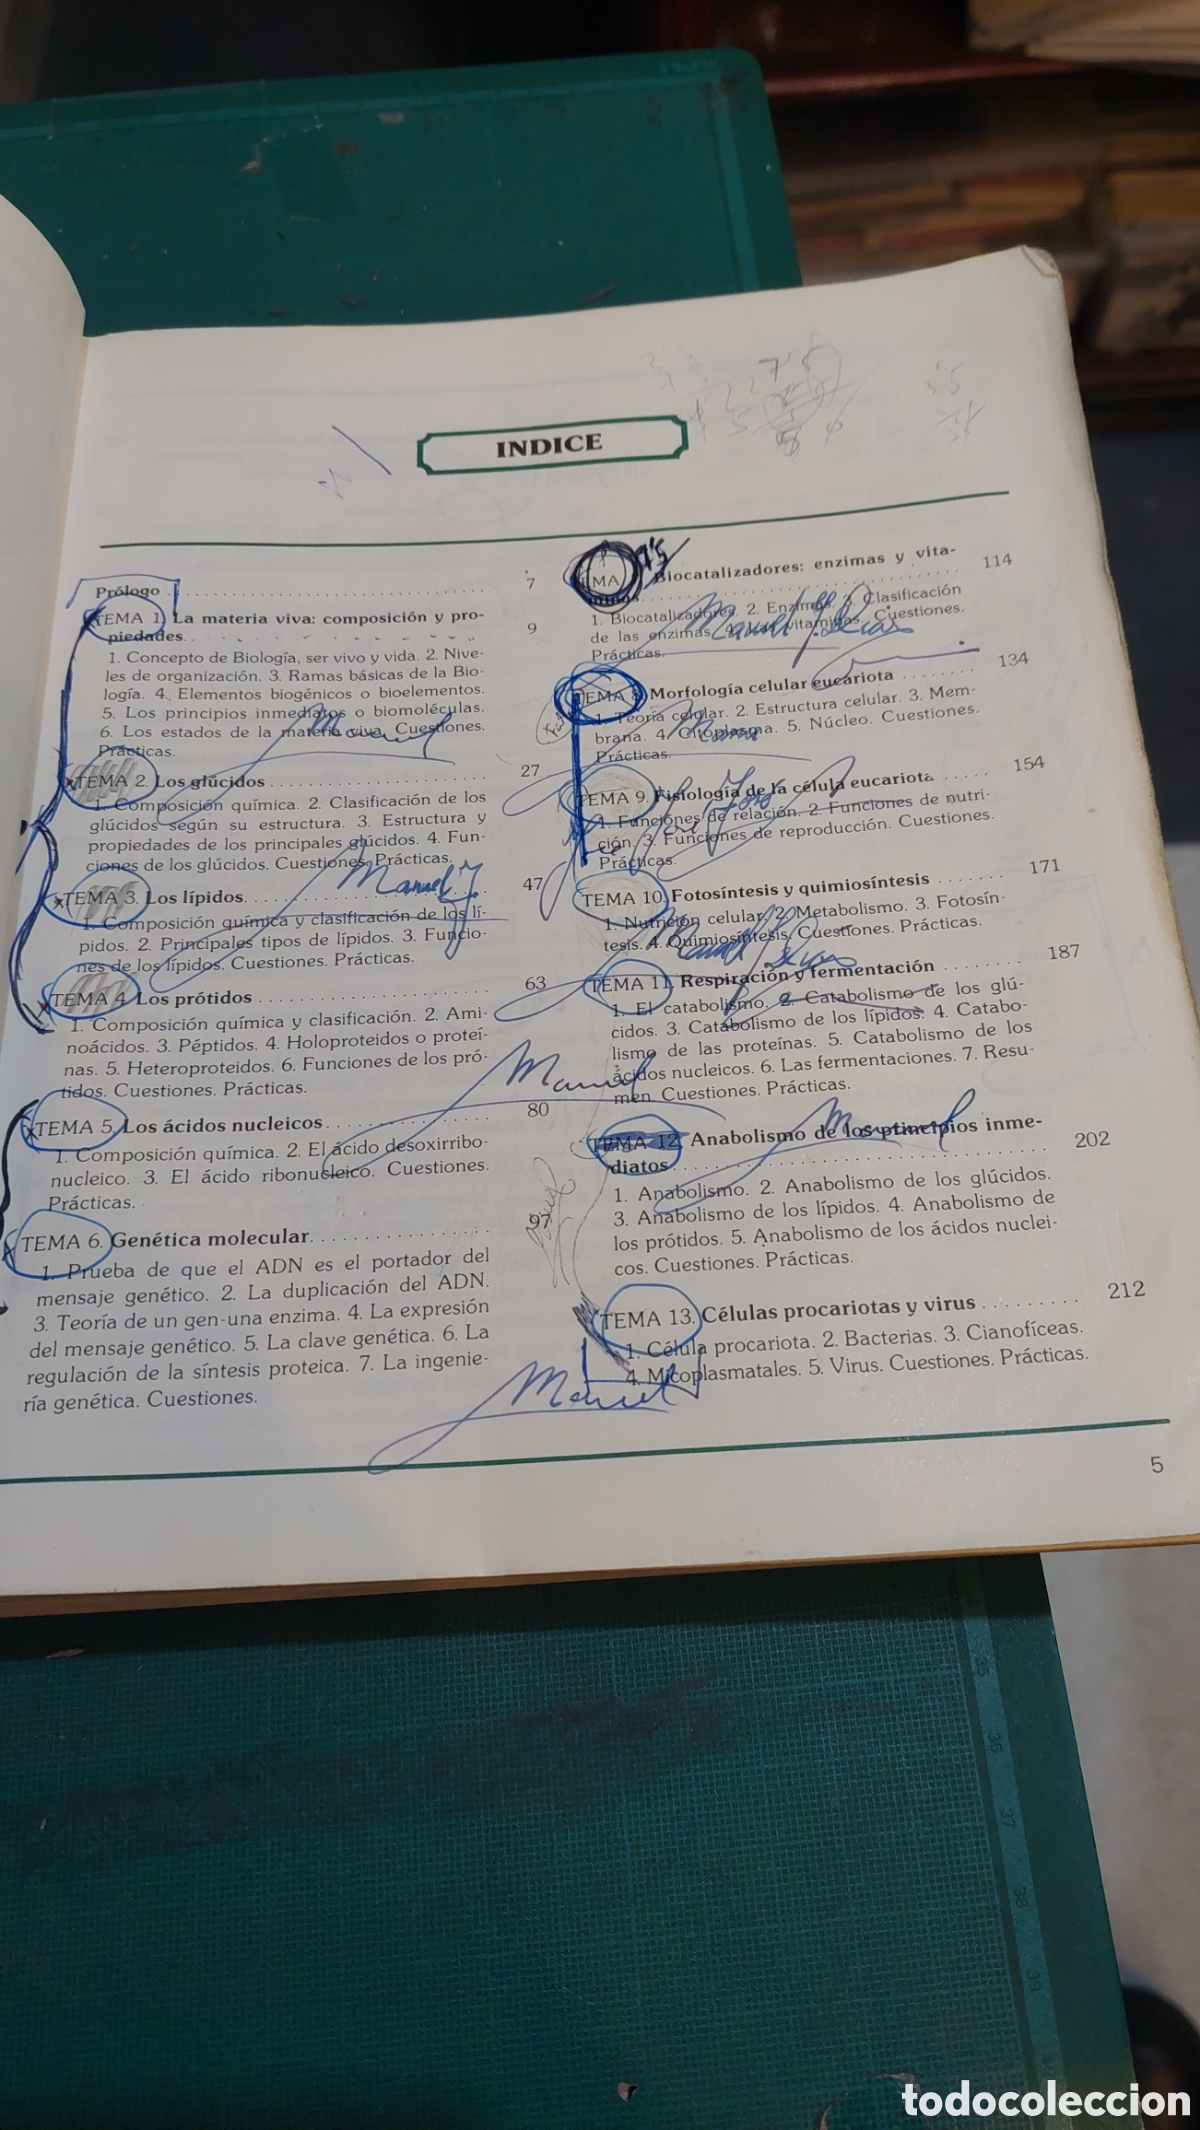 INDICE
Prólogo 7
TEMA 1. La materia viva: composición y pro-
piedades 9
1. Concepto de Biología, ser vivo y vida. 2. Nive-
les de organización. 3. Ramas básicas de la Bio-
logía. 4. Elementos biogénicos o bioelementos.
5. Los principios inmediatos o biomoléculas.
6. Los estados de la materia viva. Cuestiones.
Prácticas.
TEMA 2. Los glúcidos 27
1. Composición química. 2. Clasificación de los
glúcidos según su estructura. 3. Estructura y
propiedades de los principales glúcidos. 4. Fun-
ciones de los glúcidos. Cuestiones. Prácticas.
Manuel J.
TEMA 3. Los lípidos 47
1. Composición química y clasificación de los lí-
pidos. 2. Principales tipos de lípidos. 3. Funcio-
nes de los lípidos. Cuestiones. Prácticas.
TEMA 4. Los prótidos 63
1. Composición química y clasificación. 2. Ami-
noácidos. 3. Péptidos. 4. Holoproteidos o proteí-
nas. 5. Heteroproteidos. 6. Funciones de los pró-
tidos. Cuestiones. Prácticas.
Manuel
TEMA 5. Los ácidos nucleicos 80
1. Composición química. 2. El ácido desoxirribo-
nucleico. 3. El ácido ribonucleico. Cuestiones.
Prácticas.
TEMA 6. Genética molecular 97
1. Prueba de que el ADN es el portador del
mensaje genético. 2. La duplicación del ADN.
3. Teoría de un gen-una enzima. 4. La expresión
del mensaje genético. 5. La clave genética. 6. La
regulación de la síntesis proteica. 7. La ingenie-
ría genética. Cuestiones.
Manuel
TEMA Biocatalizadores: enzimas y vita-
minas 114
1. Biocatalizadores. 2. Enzimas. 3. Clasificación
de las enzimas. 4. Las vitaminas. Cuestiones.
Prácticas.
TEMA 8. Morfología celular eucariota 134
1. Teoría celular. 2. Estructura celular. 3. Mem-
brana. 4. Citoplasma. 5. Núcleo. Cuestiones.
Prácticas.
TEMA 9. Fisiología de la célula eucariota 154
1. Funciones de relación. 2. Funciones de nutri-
ción. 3. Funciones de reproducción. Cuestiones.
Prácticas.
TEMA 10. Fotosíntesis y quimiosíntesis 171
1. Nutrición celular. 2. Metabolismo. 3. Fotosín-
tesis. 4. Quimiosíntesis. Cuestiones. Prácticas.
TEMA 11. Respiración y fermentación 187
1. El catabolismo. 2. Catabolismo de los glú-
cidos. 3. Catabolismo de los lípidos. 4. Catabo-
lismo de las proteínas. 5. Catabolismo de los
ácidos nucleicos. 6. Las fermentaciones. 7. Resu-
men. Cuestiones. Prácticas.
TEMA 12. Anabolismo de los principios inme-
diatos 202
1. Anabolismo. 2. Anabolismo de los glúcidos.
3. Anabolismo de los lípidos. 4. Anabolismo de
los prótidos. 5. Anabolismo de los ácidos nuclei-
cos. Cuestiones. Prácticas.
TEMA 13. Células procariotas y virus 212
1. Célula procariota. 2. Bacterias. 3. Cianofíceas.
4. Micoplasmatales. 5. Virus. Cuestiones. Prácticas.
5
35
36
37
38
39
todocoleccion